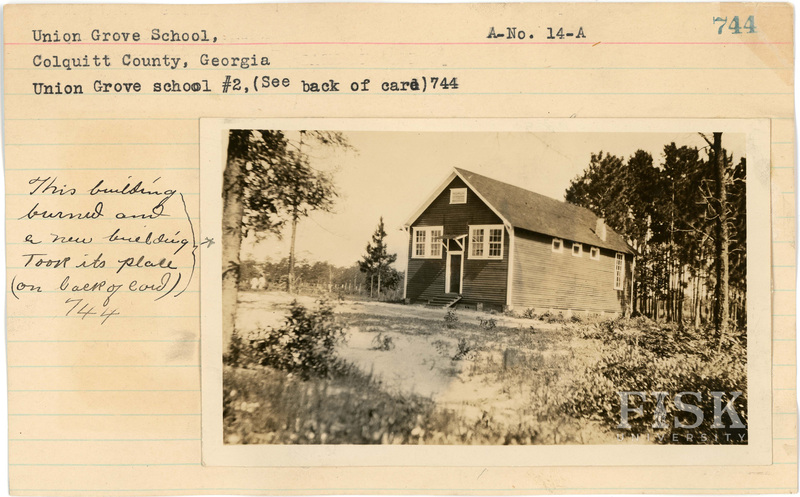 Union Grove School,
A-No. 14-A
744
Colquitt County, Georgia
Union Grove school #2,(See back of card)744
This building
burned and
a new building
Took its place
(on back of card)
744
FISK
UNIVERSITY